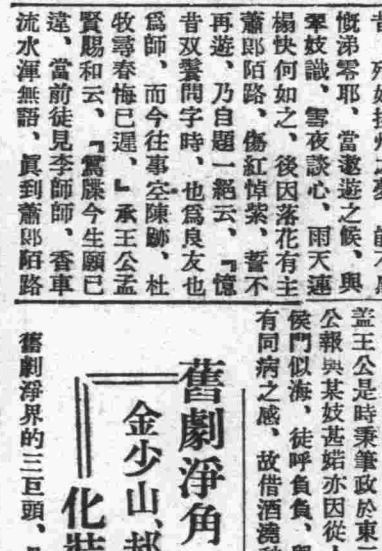 慨涕零耶、當遨遊之候、與
妓識、雪夜談心、雨天連
榻快何如之、後因落花有主
蕭郎陌路、傷紅悼紫、誓不
再遊、乃自題一絕云、『憶
昔双鬟問字時、也爲良友也
爲師、而今往事空陳跡、杜
牧尋春悔已遲、』承王公孟
賢賜和云、『鴛牒今生願已
違、當前徒見李師師、香車
流水渾無語、眞到蕭郎陌路
盖王公是時秉筆政於東
公報與某妓甚婼亦因從
侯門似海、徒呼負負、與
有同病之感、故借酒澆
舊劇淨角
金少山、郝
化裝
舊劇淨界的三巨頭、